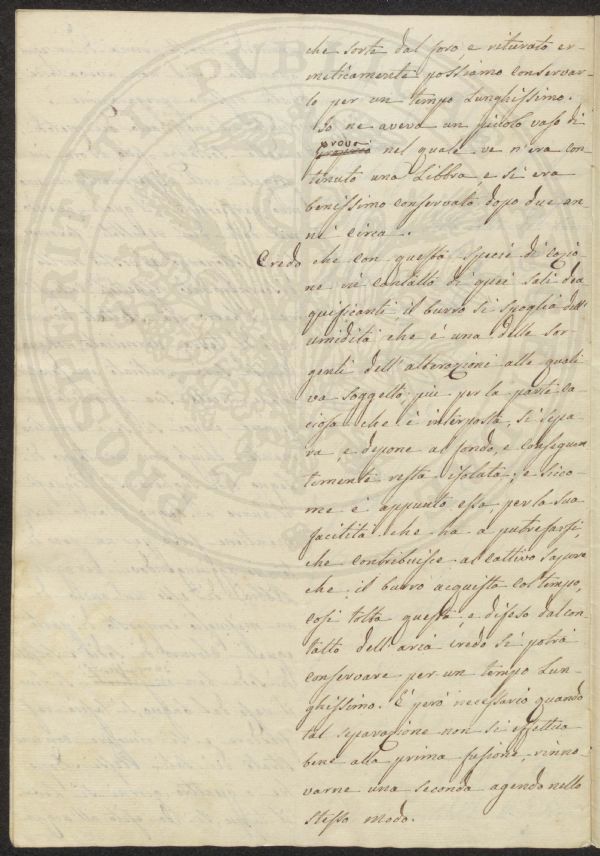 che sorte dal foro e riturato er-
meticamente possiamo conservar-
lo per un tempo Lunghissimo.
Io ne aveva un piccolo vaso di
prova
nel quale ve n'era con-
tenuto una Libbra, e si era
benissimo conservato dopo due an-
ni circa.
Credo che con questa specie di
ne in contatto di quei sali dea-
quificanti il burro si spoglia dell'
umidità che è una delle sor-
genti dell'alterazioni alle quali
va soggetto, più per la parte ca-
ciosa che è interposta, si sepa-
ra, e depone al fondo, e conseguen-
temente resta isolata; e sico-
me è appunto essa, per la sua
facilità che ha a putrefarsi,
che contribuisce al cattivo sapore
che il burro acquista col tempo,
così tolta questa, e difeso dal con-
tatto dell'aria credo si potrà
conservare per un tempo Lun-
ghissimo. È però necessario quando
tal separazione non si effettua
bene alla prima fusione, rinno-
varne una seconda agendo nello
stesso modo.
PROSPERITATI PUBLICAE